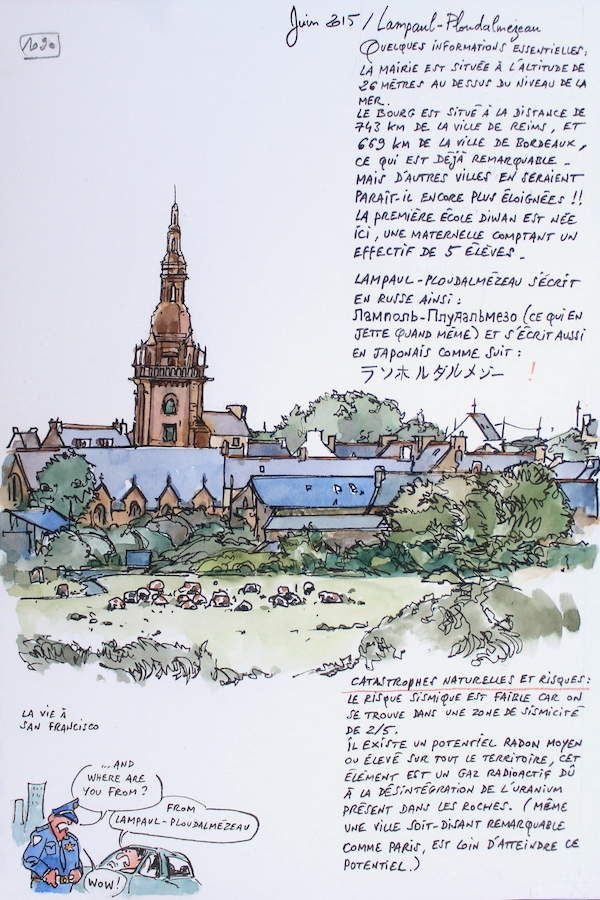 Juin 2015 / Lampaul-Ploudalmézeau
QUELQUES INFORMATIONS ESSENTIELLES:
LA MAIRIE EST SITUÉE À L'ALTITUDE DE
26 MÈTRES AU DESSUS DU NIVEAU DE LA
MER.
LE BOURG EST SITUÉ À LA DISTANCE DE
743 KM DE LA VILLE DE REIMS, ET
669 KM DE LA VILLE DE BORDEAUX,
CE QUI EST DÉJÀ REMARQUABLE_
MAIS D'AUTRES VILLES EN SERAIENT
PARAÎT-IL ENCORE PLUS ÉLOIGNÉES !!
LA PREMIÈRE ÉCOLE DIWAN EST NÉE
ICI, UNE MATERNELLE COMPTANT UN
EFFECTIF DE 5 ÉLÈVES_
LAMPAUL-PLOUDALMÉZEAU S'ÉCRIT
EN RUSSE AINSI :
Ламполь-Плудальмезо (CE QUI EN
JETTE QUAND MÊME) ET S'ÉCRIT AUSSI
EN JAPONAIS COMME SUIT :
ラソホルダルメジー !
CATASTROPHES NATURELLES ET RISQUES:
LE RISQUE SISMIQUE EST FAIBLE CAR ON
SE TROUVE DANS UNE ZONE DE SISMICITÉ
DE 2/5.
IL EXISTE UN POTENTIEL RADON MOYEN
OU ÉLEVÉ SUR TOUT LE TERRITOIRE, CET
ÉLÉMENT EST UN GAZ RADIOACTIF DÛ
À LA DÉSINTÉGRATION DE L'URANIUM
PRÉSENT DANS LES ROCHES. (MÊME
UNE VILLE SOIT-DISANT REMARQUABLE
COMME PARIS, EST LOIN D'ATTEINDRE CE
POTENTIEL.)
LA VIE À
SAN FRANCISCO
...AND
WHERE ARE
YOU FROM?
FROM
LAMPAUL-PLOUDALMÉZEAU
WOW!